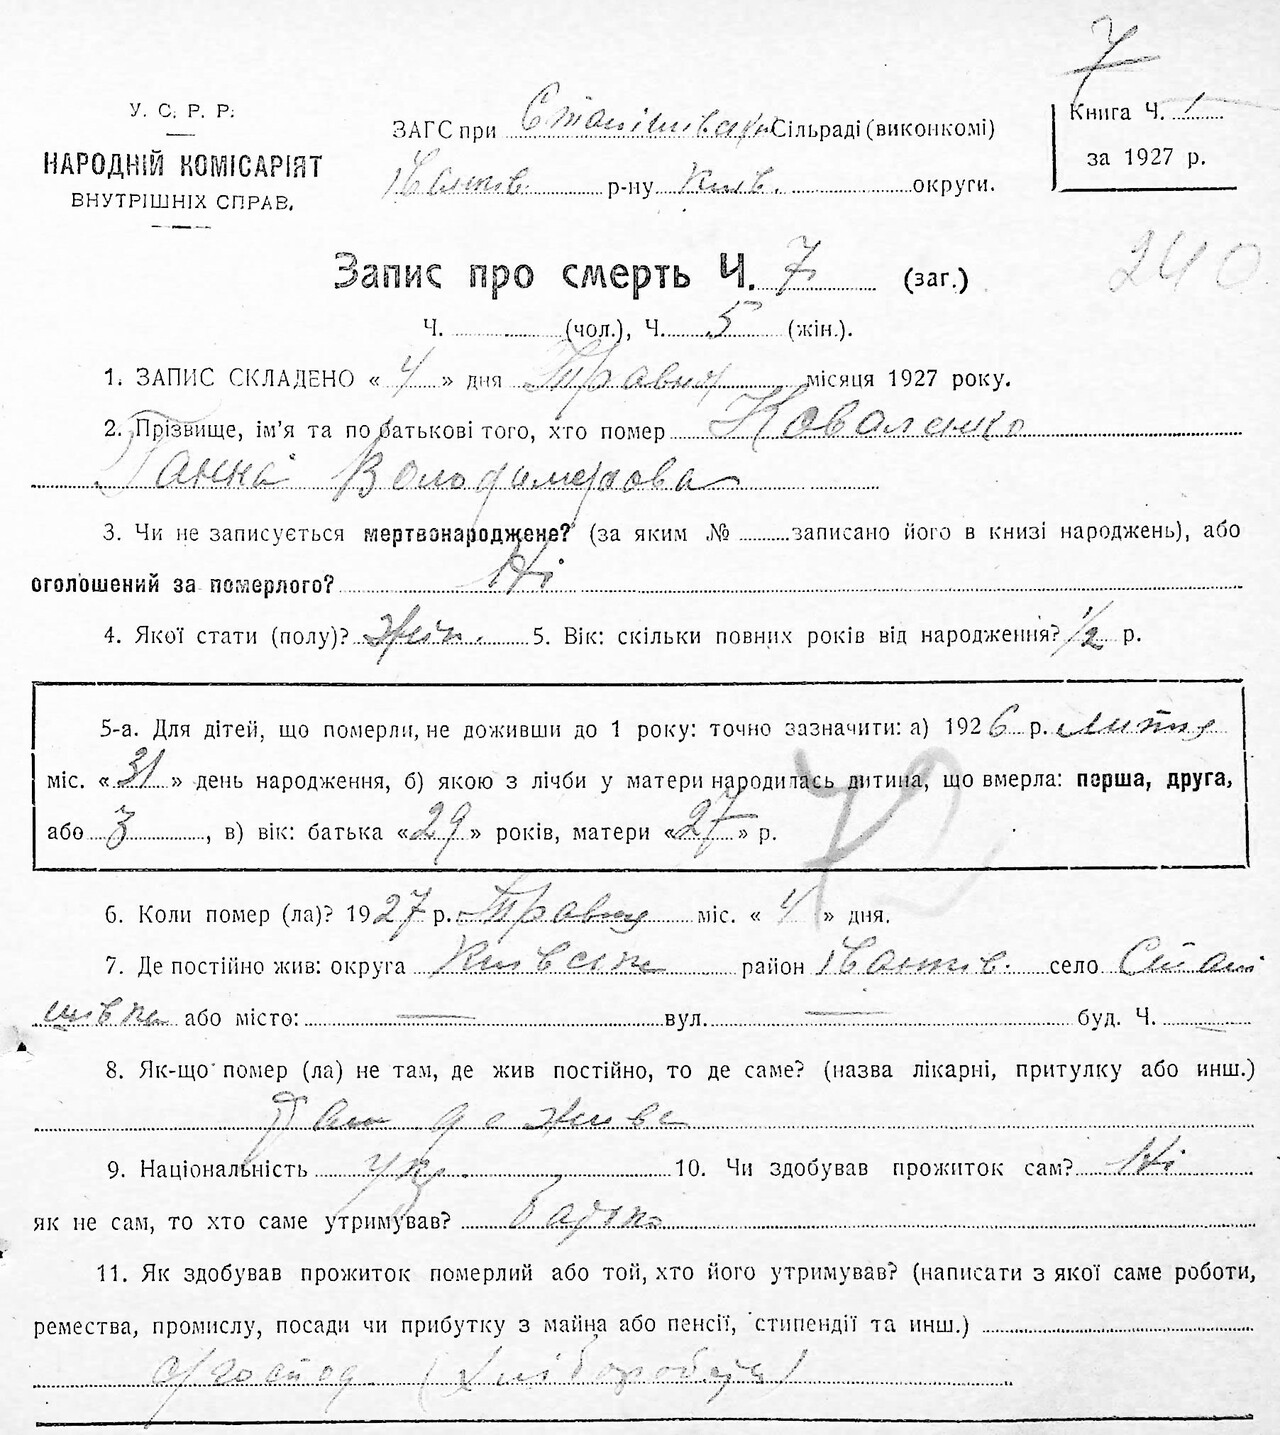 7
У. С. Р. Р.
НАРОДНІЙ КОМІСАРІЯТ
ВНУТРІШНІХ СПРАВ.
ЗАГС при Станішівськ Сільраді (виконкомі)
Іванків. р-ну Київ. округи.
Книга Ч. 1
за 1927 р.
240
Запис про смерть Ч. 7 (заг.)
Ч. (чол.), Ч. 5 (жін.).
1. ЗАПИС СКЛАДЕНО « 4 » дня Травня місяця 1927 року.
2. Прізвище, ім'я та по батькові того, хто помер Коваленко
Ганна Володимирова
3. Чи не записується мертвонароджене? (за яким № записано його в книзі народжень), або
оголошений за померлого? Ні
4. Якої стати (полу)? Жін. 5. Вік: скільки повних років від народження? 1/2 р.
5-а. Для дітей, що померли, не доживши до 1 року: точно зазначити: а) 1926 р. липня
міс. « 31 » день народження, б) якою з лічби у матери народилась дитина, що вмерла: перша, друга,
або 3, в) вік: батька « 29 » років, матери « 27 » р.
72
6. Коли помер (ла)? 1927 р. Травня міс. « 4 » дня.
7. Де постійно жив: округа Київська район Іванків. село Стані
шівка або місто: — вул. — буд. Ч. —
8. Як-що помер (ла) не там, де жив постійно, то де саме? (назва лікарні, притулку або инш.)
Там де жива
9. Національність укр. 10. Чи здобував прожиток сам? Ні
як не сам, то хто саме утримував? Батько
11. Як здобував прожиток померлий або той, хто його утримував? (написати з якої саме роботи,
ремества, промислу, посади чи прибутку з майна або пенсії, стипендії та инш.)
с/господ (Хлібороб)